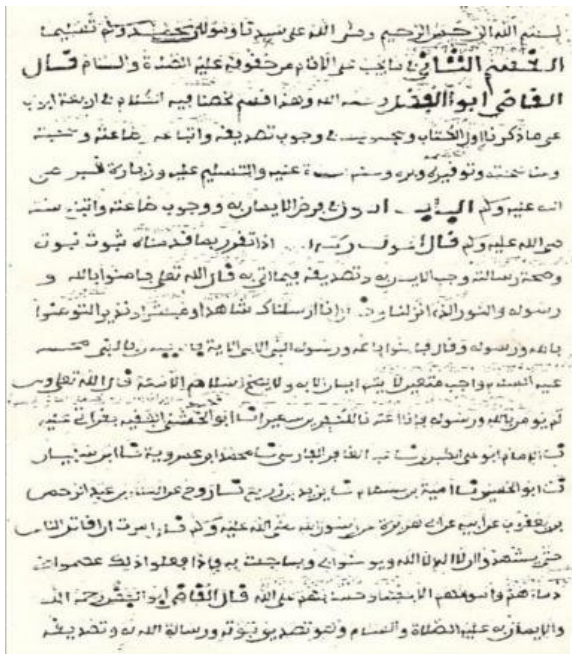 بسم الله الرحمن الرحيم وصلى الله على سيدنا ومولانا محمد وسلم تسليما
القسم الثاني فيما يجب على الأنام من حقوقه عليه الصلاة والسلام قال
القاضي أبو الفضل رحمه الله وهذا قسم لخصنا فيه الكلام في أربعة أبواب
على ما ذكرناه أول الكتاب ومجموعها في وجوب تصديقه واتباعه طاعته ومحبته
ومناصحته وتوقيره وبره وحكم الصلاة عليه والتسليم عليه وزيارة قبره صلى
الله عليه وسلم الباب الأول في فرض الإيمان به ووجوب طاعته واتباع سنته
صلى الله عليه وسلم قال المؤلف إذا تقرر بما قدمناه ثبوت نبوته
وصحة رسالته وجب الإيمان به وتصديقه فيما أتى به قال الله تعالى فآمنوا بالله و
رسوله والنور الذي أنزلنا وقال إنا أرسلناك شاهدا ومبشرا ونذيرا لتومنوا
بالله ورسوله وقال فآمنوا بالله ورسوله النبي الأمي الآية فالإيمان بالنبي محمد
عليه السلام واجب متعين لا يتم إيمان إلا به ولا يصح إسلام إلا معه قال الله تعالى ومن
لم يومن بالله ورسوله فإنا أعتدنا للكافرين سعيرا نا أبو محمد الخشني الفقيه بقراءتي عليه
نا الإمام أبو علي الطبري نا عبد الغافر الفارسي نا محمد ابن عمروية نا ابن سفيان
نا أبو الحسين نا أمية بن بسطام نا يزيد بن زريع نا روح عن العلاء بن عبد الرحمن
بن يعقوب عن أبيه عن أبي هريرة عن رسول الله صلى الله عليه وسلم قال أمرت أن أقاتل الناس
حتى يشهدوا أن لا إله إلا الله ويومنوا بي وبما جئت به فإذا فعلوا ذلك عصموا مني
دماءهم وأموالهم إلا بحقها وحسابهم على الله قال القاضي أبو الفضل رحمه الله
والإيمان به عليه الصلاة والسلام هو تصديق نبوته ورسالة الله له وتصديقه